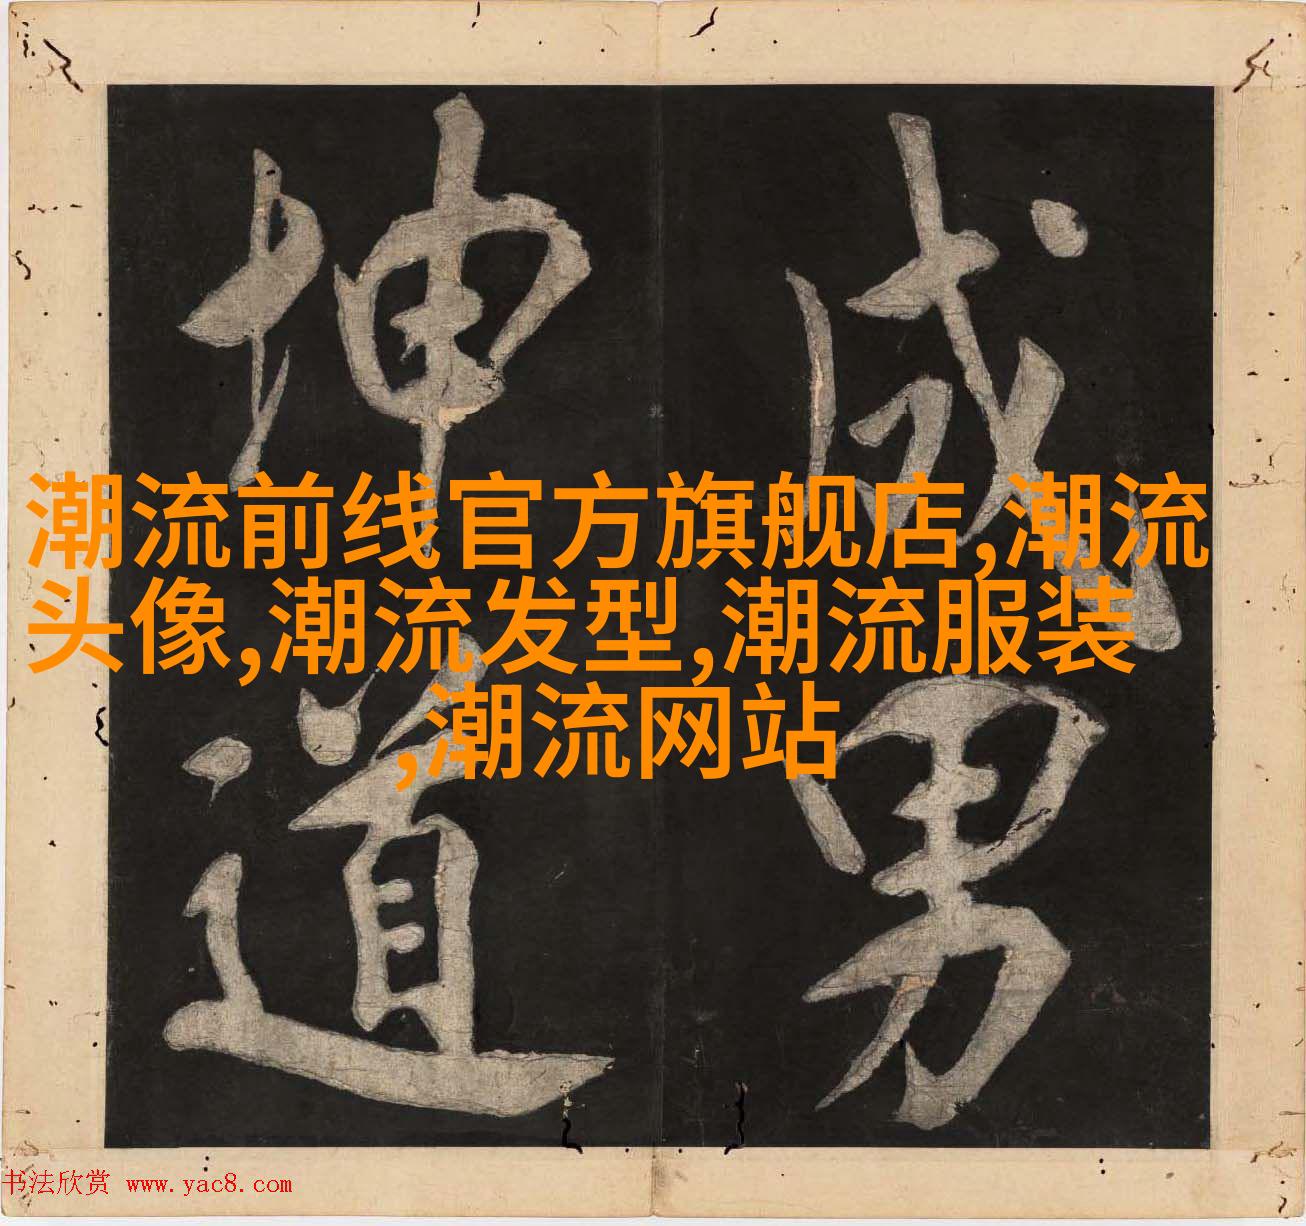 成男
坤道
潮流前线官方旗舰店,潮流
头像,潮流发型,潮流服装
,潮流网站
书法欣赏 www.yac8.com